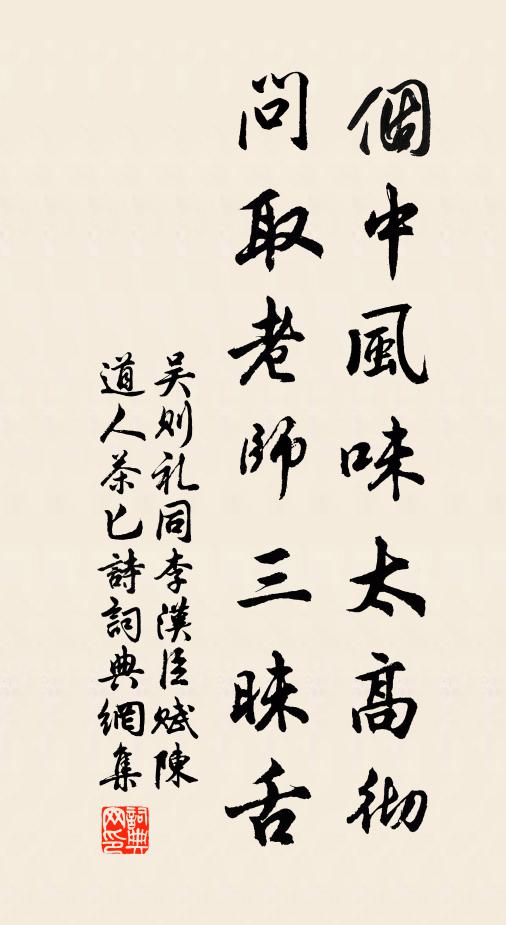 個中風味太高彻
問取老師三昧舌
吴则礼同李漢臣賦陳
道人茶匕詩詞典網集
詞典
网印